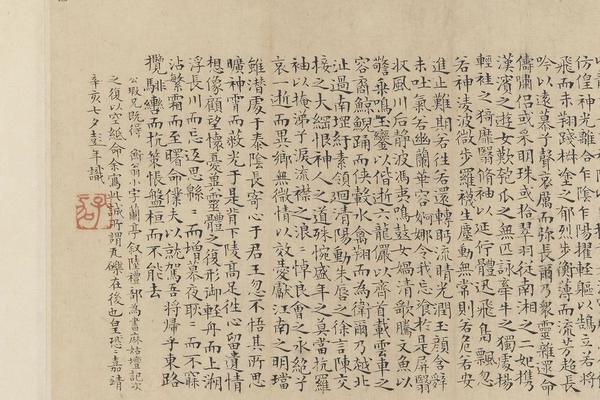 仿偟神光離合乍陰乍陽擢輕軀以鵠立若將
飛而未翔踐椒塗之郁烈步蘅薄而流芳超長
吟以遠慕兮聲哀厲而弥長爾乃衆靈雜遝命
儔嘯侶或采明珠或拾翠羽從南湘之二妃携
漢濱之遊女歎匏瓜之無匹詠牽牛之獨處楊
輕袿之猗靡翳脩袖以延佇體迅飛鳧飄忽
若神淩波微步羅襪生塵動無常則若危若安
進止難期若往若還轉眄流精光潤玉顔含辭
未吐氣若幽蘭華容婀娜令我忘飡於是屏翳
収風川后静波馮夷鳴鼓女媧清歌騰文魚以
警乗鳴玉鑾以偕逝六龍儼以齊首載雲車之
容裔鯨鯢踊而俠轂水禽翔而為衛爾乃越北
沚過南堽紆素領迴清陽動朱唇以徐言陳交
接之大綱恨神人之道殊怨盛年之莫當抗羅
袖以掩涕子淚流襟之浪浪悼良會之永絶子
哀一逝而異鄉無微情以效愛獻江南之明璫
雖潜處于泰陰長寄心于君王忽不悟其所思
曠神霄而蔽光于是背下陵高足往心留遺情
想像顧望懷憂冀靈體之復形御輕舟而上溯
浮長川而忘返思緜緜而増慕夜耿耿而不寐
沾繁霜而至曙命僕夫以就駕吾将帰乎東路
攬騑轡而抗策悵盤桓而不能去
公瑕兄既得衡翁小字蘭亭叙陸禮部為書麻姑壇記次
之復以空紙命余寫此誠所謂瓦礫在後也皇恐皇恐嘉靖
辛亥七夕彭年識